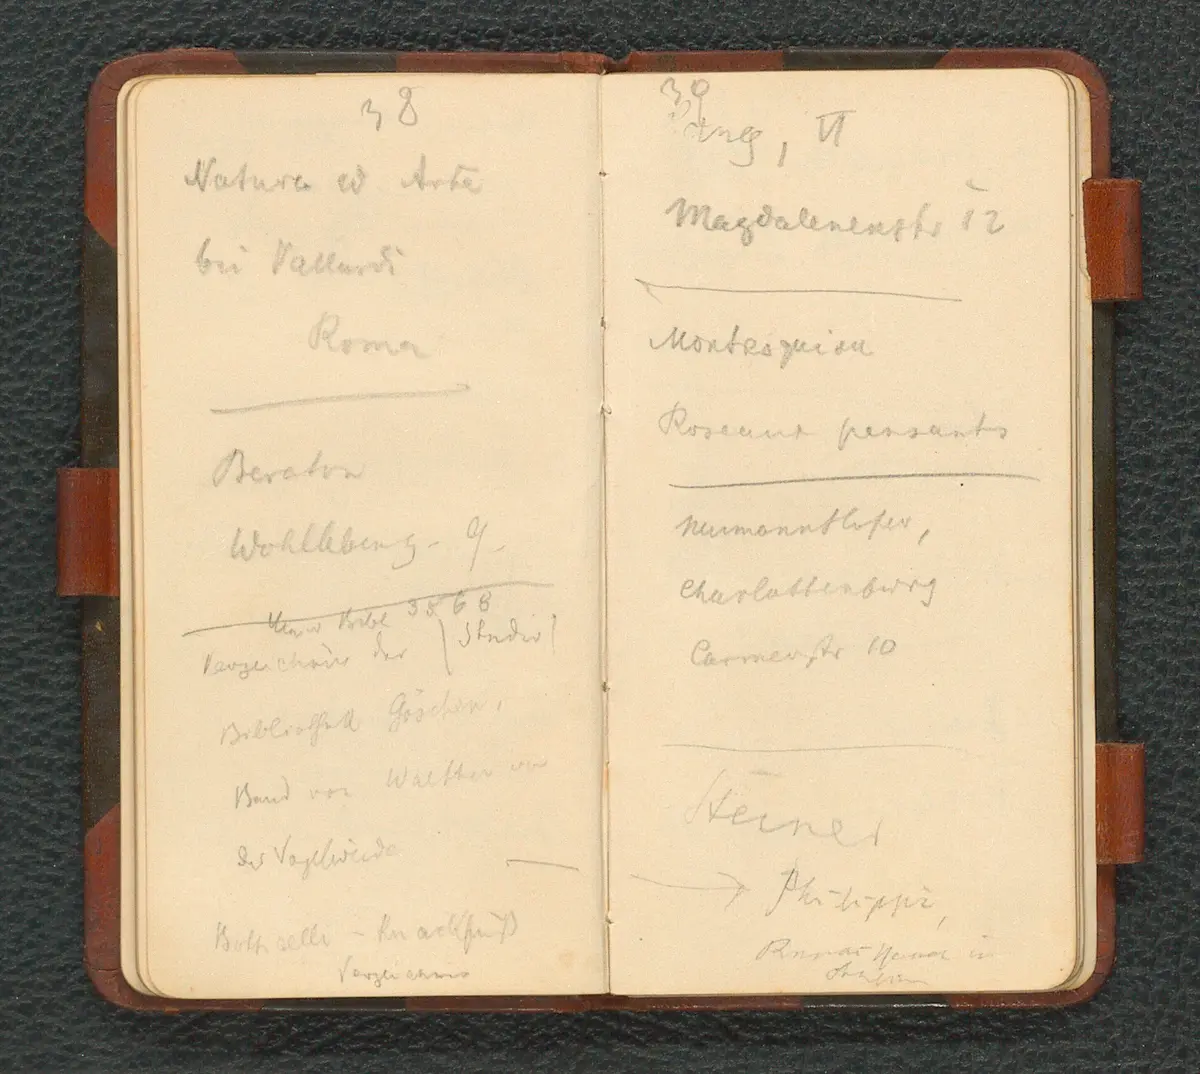 38
Natura ed Arte
bei Vallardi
Roma
Beraton
Wohlleben 9.
Bibl 3868
Verzeichnis der (Studio)
Bibliothek Göschen,
Band von Walther von
der Vogelweide
Botticelli – Knackfuß
Verzeichnis
39
VI
Magdalenenstr 12
Montesquiou
Roseaux pensants
Neumann Hofer,
Charlottenburg
Carmerstr 10
Steiner
Philippi,
in